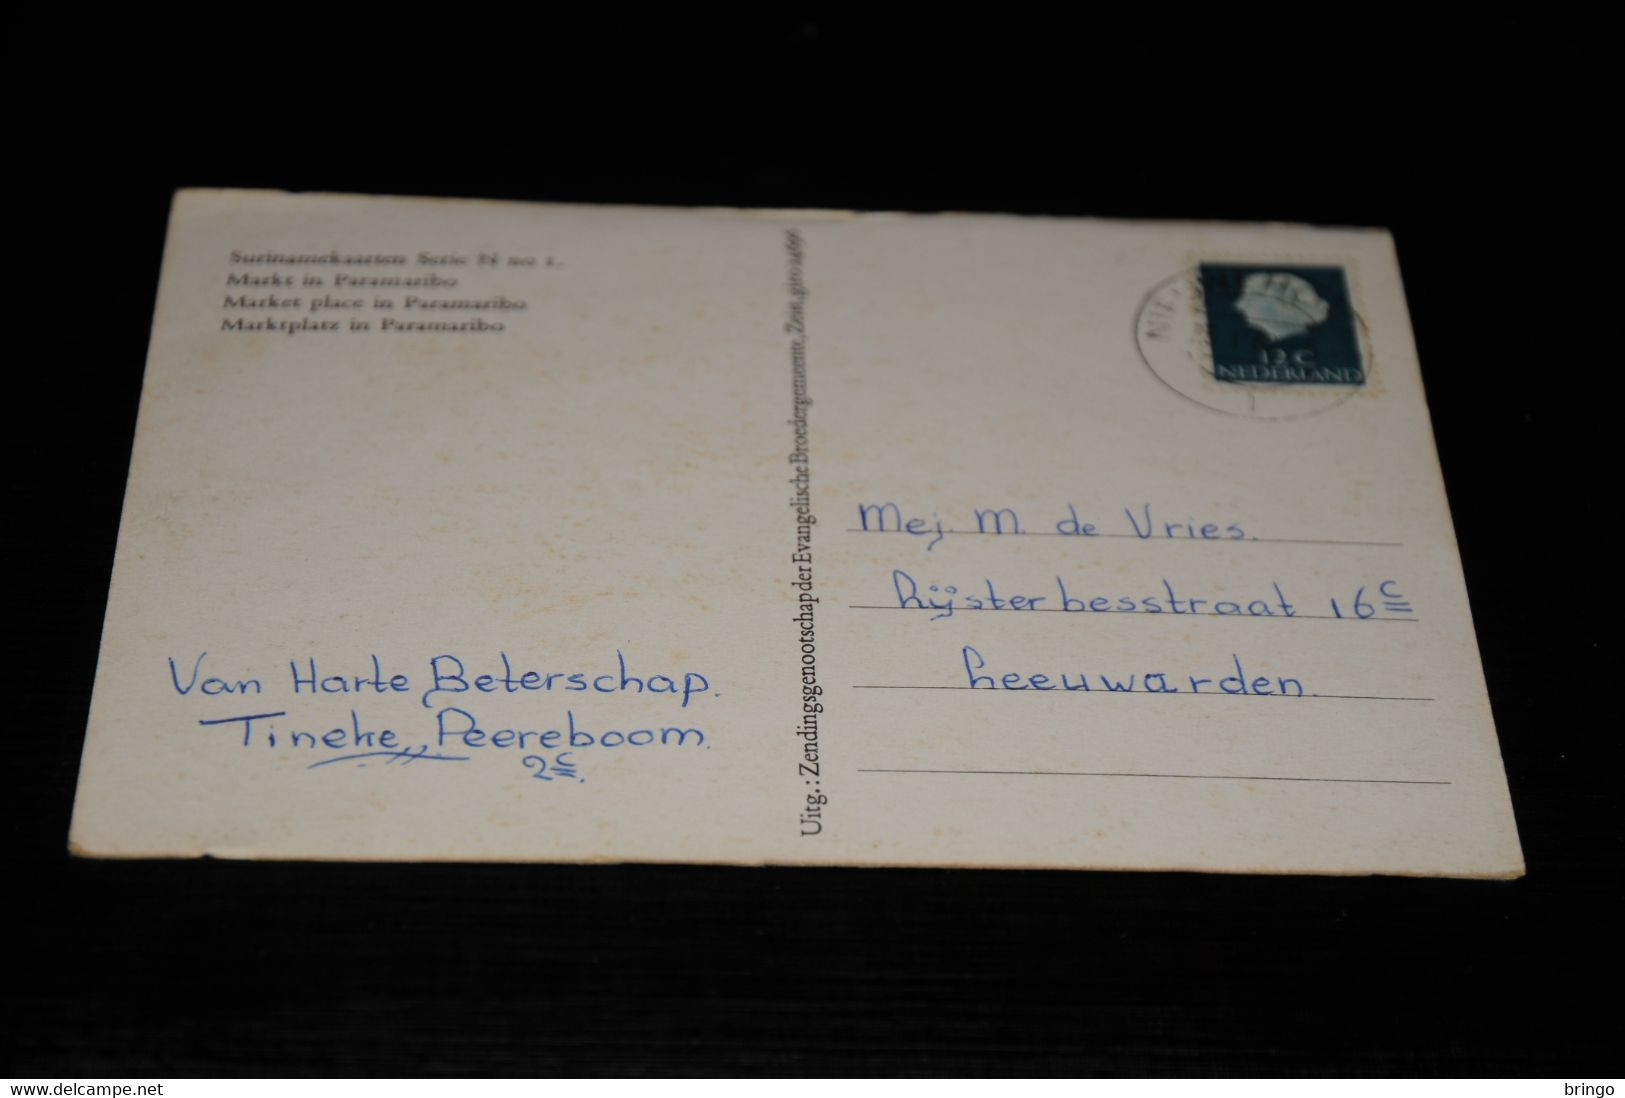 Surinamekaarten Serie N no 1.
Markt in Paramaribo
Market place in Paramaribo
Marktplatz in Paramaribo
Van Harte Beterschap.
Tineke Peereboom.
2c.
Uitg.: Zendingsgenootschap der Evangelische Broedergemeente, Zeist, giro 24696
12 C
NEDERLAND
Mej. M. de Vries.
Lijsterbesstraat 16c
Leeuwarden.
www.delcampe.net
bringo